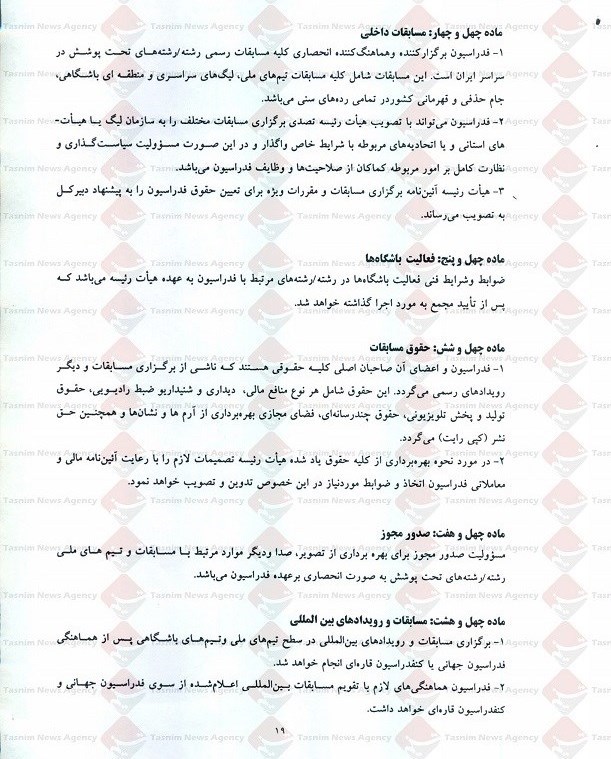 ماده چهل و چهار: مسابقات داخلی
۱- فدراسیون برگزارکننده وهماهنگ‌کننده انحصاری کلیه مسابقات رسمی رشته/رشته‌های تحت پوشش در
سراسر ایران است. این مسابقات شامل کلیه مسابقات تیم‌های ملی، لیگ‌های سراسری و منطقه ای باشگاهی،
جام حذفی و قهرمانی کشوردر تمامی رده‌های سنی می‌باشد.
۲- فدراسیون می‌تواند با تصویب هیأت رئیسه تصدی برگزاری مسابقات مختلف را به سازمان لیگ یا هیأت-
های استانی و یا اتحادیه‌های مربوطه با شرایط خاص واگذار و در این صورت مسؤولیت سیاست‌گذاری و
نظارت کامل بر امور مربوطه کماکان از صلاحیت‌ها و وظایف فدراسیون می‌باشد.
۳- هیأت رئیسه آئین‌نامه برگزاری مسابقات و مقررات ویژه برای تعیین حقوق فدراسیون را به پیشنهاد دبیرکل
به تصویب می‌رساند.
ماده چهل و پنج: فعالیت باشگاه‌ها
ضوابط وشرایط فنی فعالیت باشگاه‌ها در رشته/رشته‌های مرتبط با فدراسیون به عهده هیأت رئیسه می‌باشد که
پس از تأیید مجمع به مورد اجرا گذاشته خواهد شد.
ماده چهل و شش: حقوق مسابقات
۱- فدراسیون و اعضای آن صاحبان اصلی کلیه حقوقی هستند که ناشی از برگزاری مسابقات و دیگر
رویدادهای رسمی می‌گردد. این حقوق شامل هر نوع منافع مالی، دیداری و شنیداریو ضبط رادیویی، حقوق
تولید و پخش تلویزیونی، حقوق چندرسانه‌ای، فضای مجازی بهره‌برداری از آرم ها و نشان‌ها و همچنین حق
نشر (کپی رایت) می‌گردد.
۲- در مورد نحوه بهره‌برداری از کلیه حقوق یاد شده هیأت رئیسه تصمیمات لازم را با رعایت آئین‌نامه مالی و
معاملاتی فدراسیون اتخاذ و ضوابط موردنیاز در این خصوص تدوین و تصویب خواهد نمود.
ماده چهل و هفت: صدور مجوز
مسؤولیت صدور مجوز برای بهره برداری از تصویر، صدا ودیگر موارد مرتبط با مسابقات و تیم های ملی
رشته/رشته‌های تحت پوشش به صورت انحصاری برعهده فدراسیون می‌باشد.
ماده چهل و هشت: مسابقات و رویدادهای بین المللی
۱- برگزاری مسابقات و رویدادهای بین‌المللی در سطح تیم‌های ملی وتیم‌های باشگاهی پس از هماهنگی
فدراسیون جهانی یا کنفدراسیون قاره‌ای انجام خواهد شد.
۲- فدراسیون هماهنگی‌های لازم با تقویم مسابقات بین‌المللی اعلام‌شده از سوی فدراسیون جهانی و
کنفدراسیون قاره‌ای خواهد داشت.
۱۹